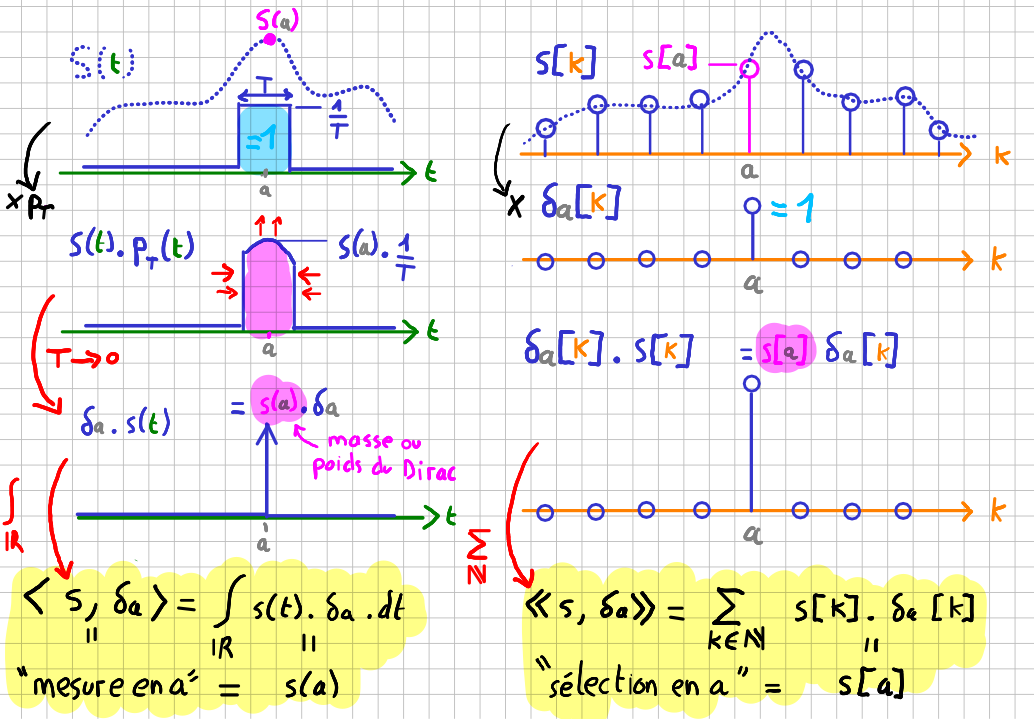 S(a)
S(t)
T
1/T
=1
a
t
× P_T
S(t).P_T(t)
s(a).1/T
a
t
T→0
δa.s(t) = s(a).δa
masse ou
poids du Dirac
a
t
∫
IR
< s, δa > = ∫ s(t).δa.dt
IR
"mesure en a" = s(a)
s[k]
s[a]
a
k
× δa[k]
=1
a
k
δa[k].s[k] = s[a] δa[k]
a
k
Σ
Z
≪ s, δa ≫ = Σ s[k].δa[k]
k∈N
"sélection en a" = s[a]